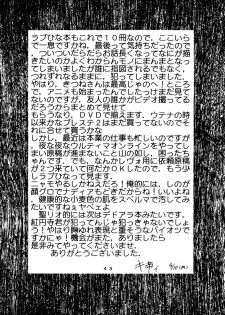 ラブひな本もこれで１０冊なので、ここいら
で一息ですかね。最後って気持ちだったので
、ついついだらだらお話長くなってなにが描
きたいのかよくわからんモノにまんまとなっ
てしまいましたが誰に指図されるでもなく、
つれずれなるままに、犯ってしまいました。
やはり、きつねさんは最高じゃの～！ところ
で、アニメも始まったんだけどまだ見て
ないですが、友人の誰かがビデオ撮ってる
だろうからまとめて見せて
もらうなり、ＤＶＤで揃えます。ウテナの時
以来かなブレステ２まだ買ってないのでそれ
に合せて買うかな
しかし、最近は本業の仕事も忙しいのですが
、夜な夜なウルティマオンラインをやってし
まい原稿が進まないこと山の如し、困ったち
ゃんです。でも、なんかレヴォ用に依頼原稿
が２つ来ていて何だかＯＫしたので、もう少
しラブひなって見ます。
ニャモやるしきわねえだろ！俺的には、しのが
顔グロでナディアもどきだからね！いいよね
、健康的な小麦色の肌をスペルマで汚して
みたいですねぇヤベェよ
聖リオ的には次はデドアラ本みたいです！
あ円寺君が犯っちゃいなよ犯っちゃないでしょ
！やはり胸ゆれ表現と重そうなバイオツで
すかにゃ！機会がまた、ありましたら
是非みてやってください。
ありがとうございました。
４３